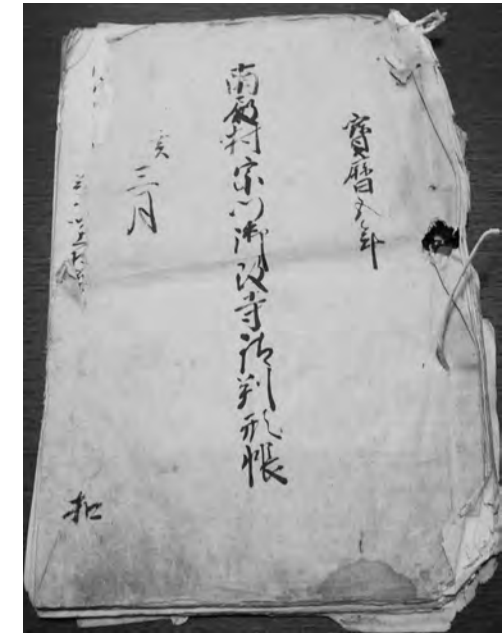 寶暦五年
南殿村宗門御改寺請判形帳
亥三月
扣